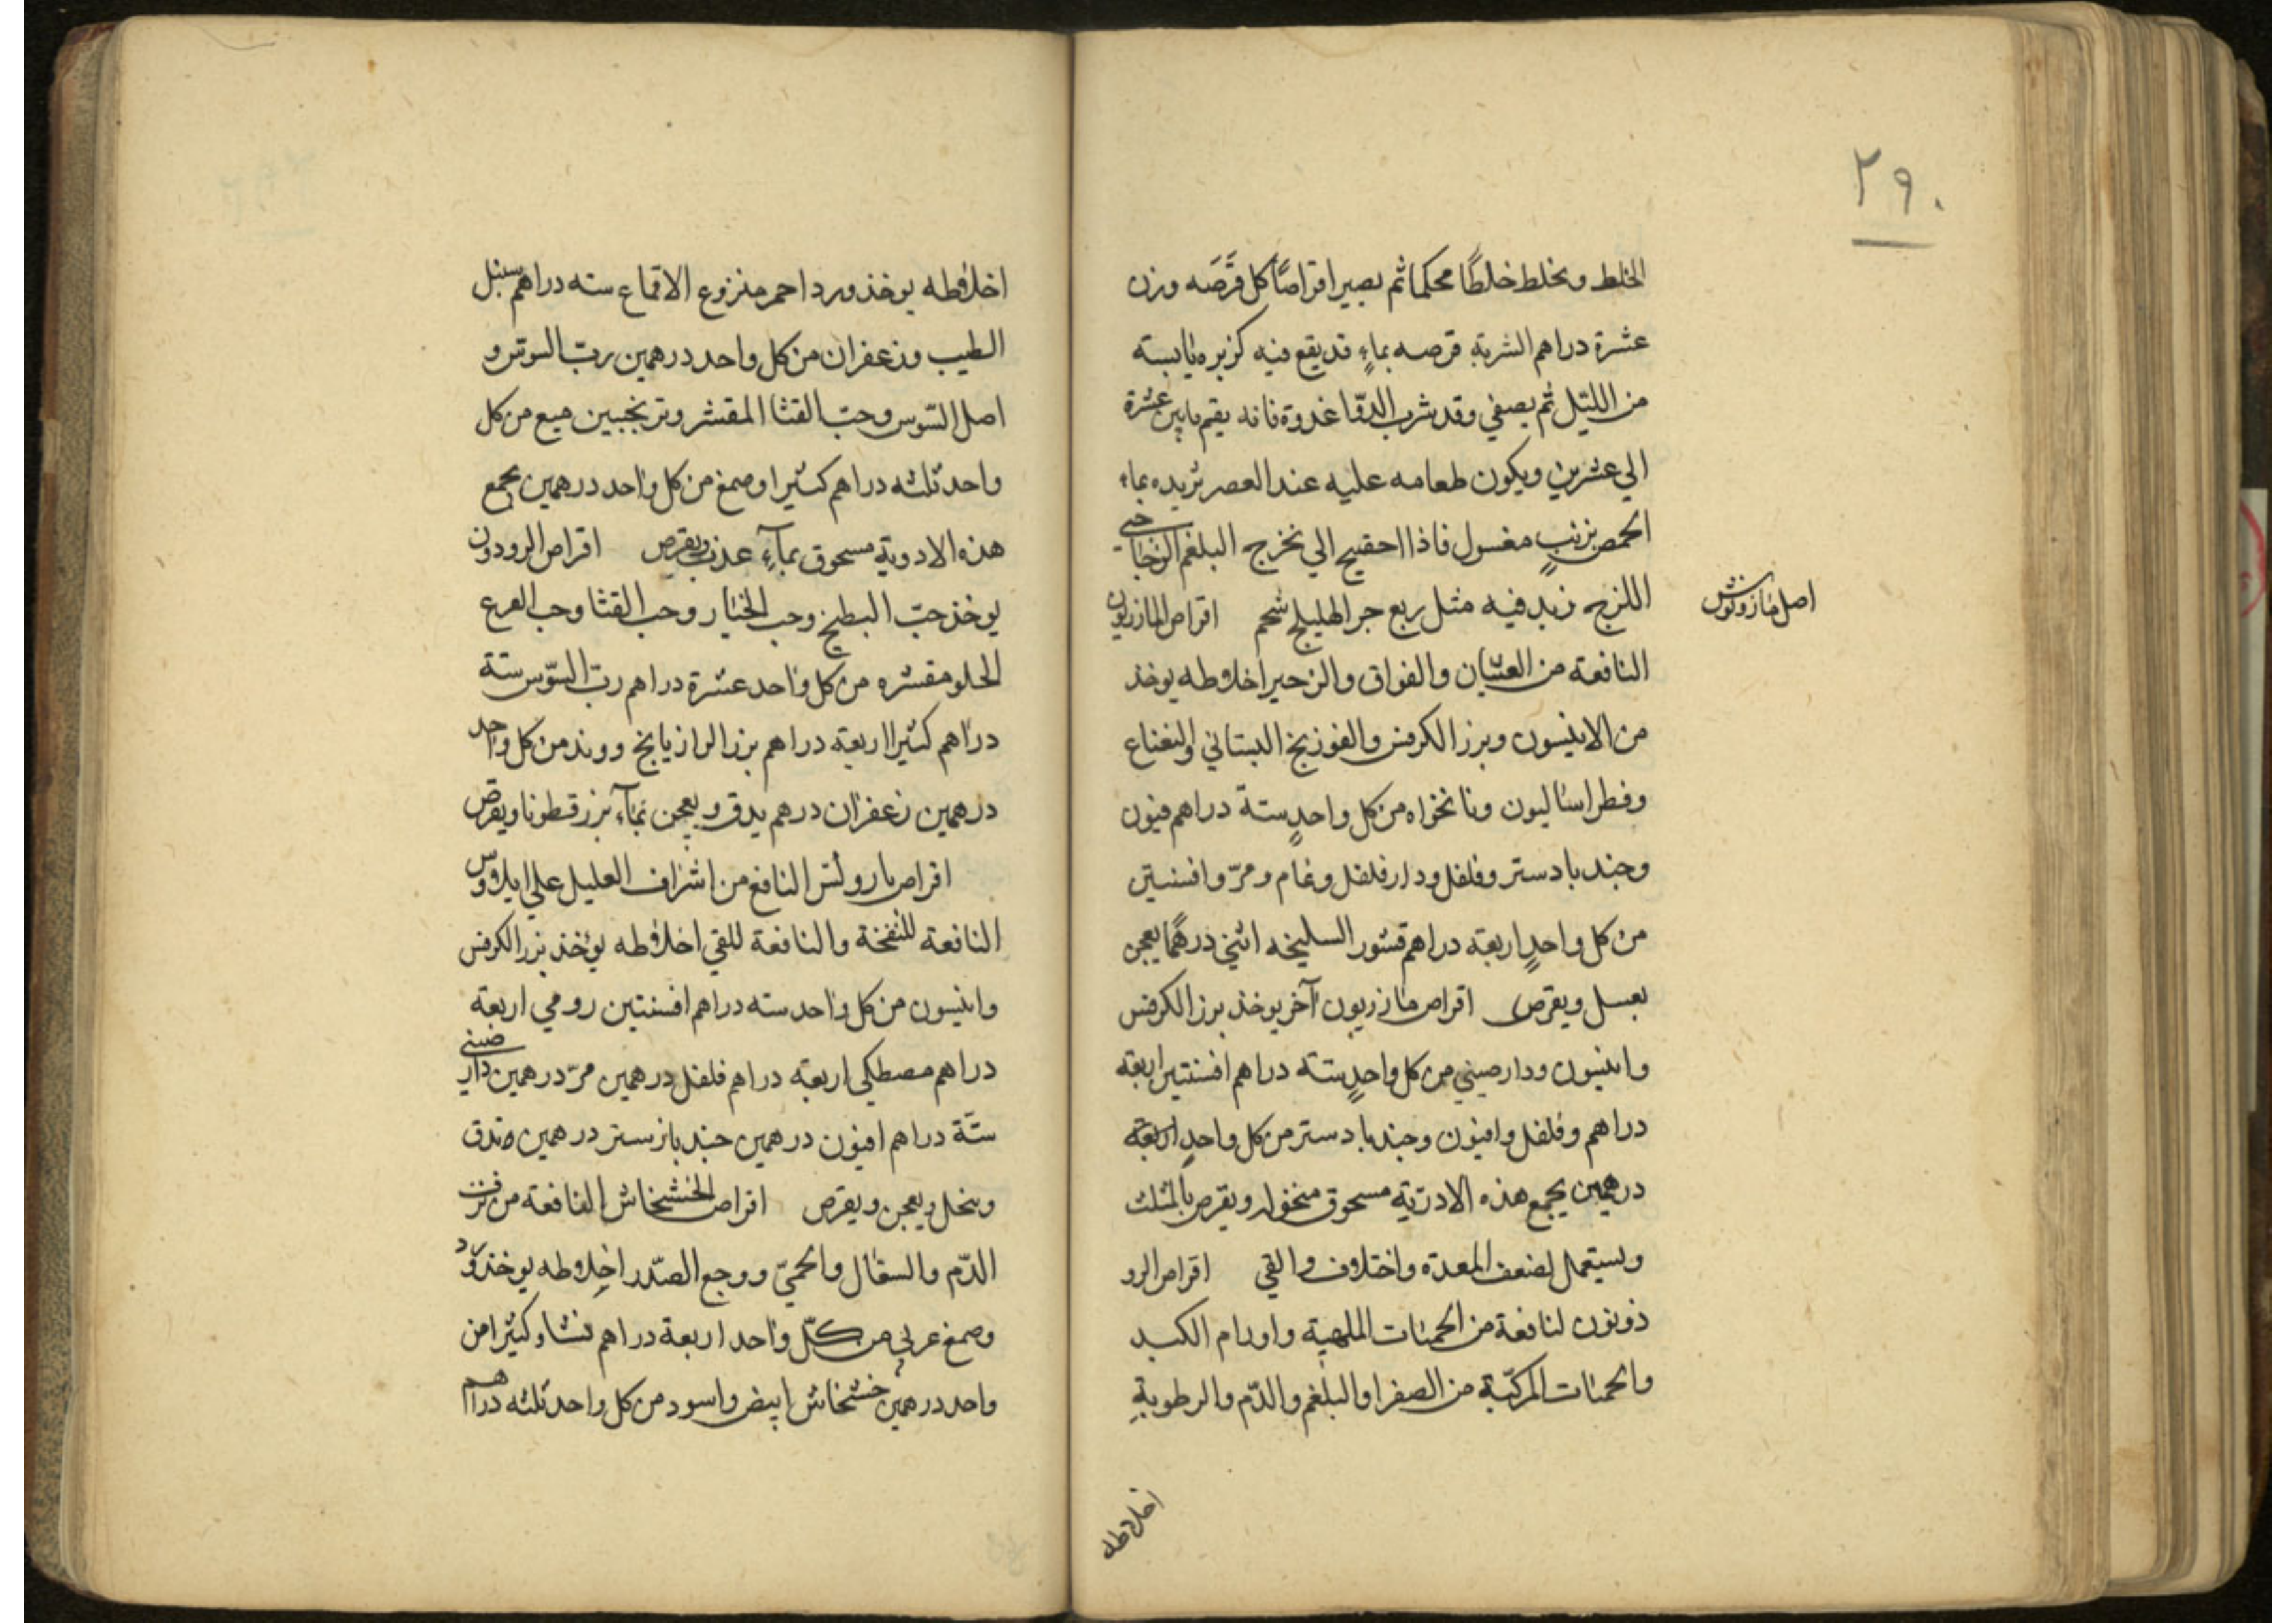 ٢٩٠
الخلط ويخلط خلطًا محكما ثم يصير اقراصًا كل قرصَه وزن
عشرة دراهم الشربة قرصه بماءٍ قد يقع فيه كزبره يابسة
من الليّل ثم يصفي وقد شرب الدوّا غدوة فانه يقيم مابين عشرة
الي عشرين ويكون طعامه عليه عند العصر ثريده بماء
الحمص بزيتٍ مغسول فاذا احقيج الي نخرج البلغم الزجاجي
اللزج زيد فيه مثل ربع جر الهليلج شحم اقراص المازريون
اصل مازرونوش
النافعة من الغثيان والفواق والزحير اخلاطه يوخذ
من الانيسون وبرز الكرفس والفوذنج البستاني والنعناع
وفطراساليون ونانخواه من كل واحدٍ ستة دراهم فيون
وجندبادستر وفلفل ودارفلفل ونمام ومرّ وافسنتين
من كل واحدٍ اربعة دراهم قشور السليخه اثني درهمًا يعجن
بعسل ويقرص اقراص مازريون آخر يوخذ برز الكرفس
وانيسون ودارصيني من كل واحدٍ ستة دراهم افسنتين اربعة
دراهم وفلفل وافيون وجندبادستر من كل واحدٍ اربعة
درهمين يجمع هذه الادوية مسحوق منخول ويقرص بالمثلث
ويستعمل لضعف المعدة واختلاف والقي اقراص الرو
ذونون لنافعة من الحميات الملهبة واورام الكبد
والحميات المركبّة من الصفرا والبلغم والدّم والرطوبةِ
اخلاطه
اخلاطه يوخذ ورد احمر منزوع الاقماع سته دراهم سنبل
الطيب وزعفران من كل واحد درهمين ربّ السوس و
اصل السّوس وحبّ القثا المقشر وترنجبين ميع من كل
واحد ثلثه دراهم كثيرا وصمغ من كل واحد درهمين يجمع
هذه الادوية مسحوق بمآءٍ عذب ويقرص اقراص الرودون
يوخذ حبّ البطيخ وحب الخيار وحب القثا وحب القرع
الحلو مقشره من كل واحد عشرة دراهم ربّ السّوس ستة
دراهم كثيرا اربعة دراهم برز الرازيانج ووند من كل واحد
درهمين زعفران درهم يدق ويعجن بمآء بزرقطونا ويقرص
اقراص بارولس النافع من اشراف العليل علي ايلاوس
النافعة للنفخة والنافعة للقي اخلاطه يؤخذ بزر الكرفس
وانيسون من كل واحد سته دراهم افسنتين رومي اربعة
دراهم مصطكي اربعة دراهم فلفل درهمين مرّ درهمين دارصيني
ستّة دراهم افيون درهمين جندبازستر درهمين وتدق
وينخل ويعجن ويقرص اقراص الخشخاش النافعة من نزف
الدّم والسعال والحميّ ووجع الصّدر اخلاطه يوخذ ورد
وصمغ عربي من كلّ واحد اربعة دراهم نشا وكثيرا من
واحد درهمين خشخاش ابيض واسود من كل واحد ثلثه دراهم